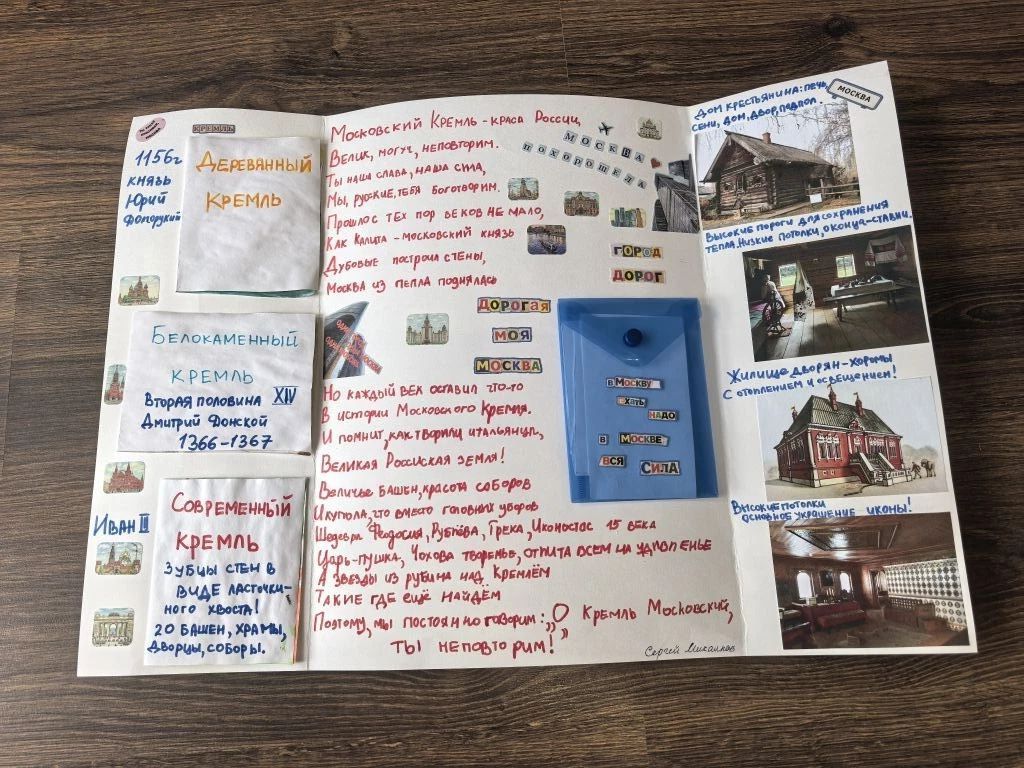 КРЕМЛЬ
1156г
князь
Юрий
Долорукий
Деревянный
Кремль
Белокаменный
кремль
Вторая половина XIV
Дмитрий Донской
1366-1367
Иван III
Современный
кремль
Зубцы стен в
виде ласточки-
ного хвоста!
20 башен, храмы,
дворцы, соборы.
Московский Кремль - краса России,
Велик, могуч, неповторим.
Ты наша слава, наша сила,
Мы, русские, тебя боготворим.
Прошло с тех пор веков не мало,
Как Калита - московский князь
Дубовые построил стены,
Москва из пепла поднялась
МОСКВА
ПОХОРОШЕЛА
ГОРОД
ДОРОГ
ДОРОГАЯ
МОЯ
МОСКВА
в Москву
ехать
надо
в Москве
вся сила
Но каждый век оставил что-то
В истории Московского Кремля.
И помнит, как творили итальянцы,
Великая Россиская земля!
Величье башен, красота соборов
И купола, что вместо головных уборов
Шедевры Феодосия, Рублёва, Грека, Иконостас 15 века
Царь-пушка, Чохова творенье, отлита всем на удивленье
А звезды из рубина над Кремлём
Такие где ещё найдём
Поэтому, мы постоянно говорим: „О Кремль Московский,
ты неповторим!"
Сергей Михалков
Дом крестьянина: печь,
сени, дом, двор, подпол.
МОСКВА
Высокие пороги для сохранения
тепла. Низкие потолки, оконца-ставни.
Жилище дворян-хоромы
с отоплением и освещением!
Высокие потолки
основное украшение иконы!